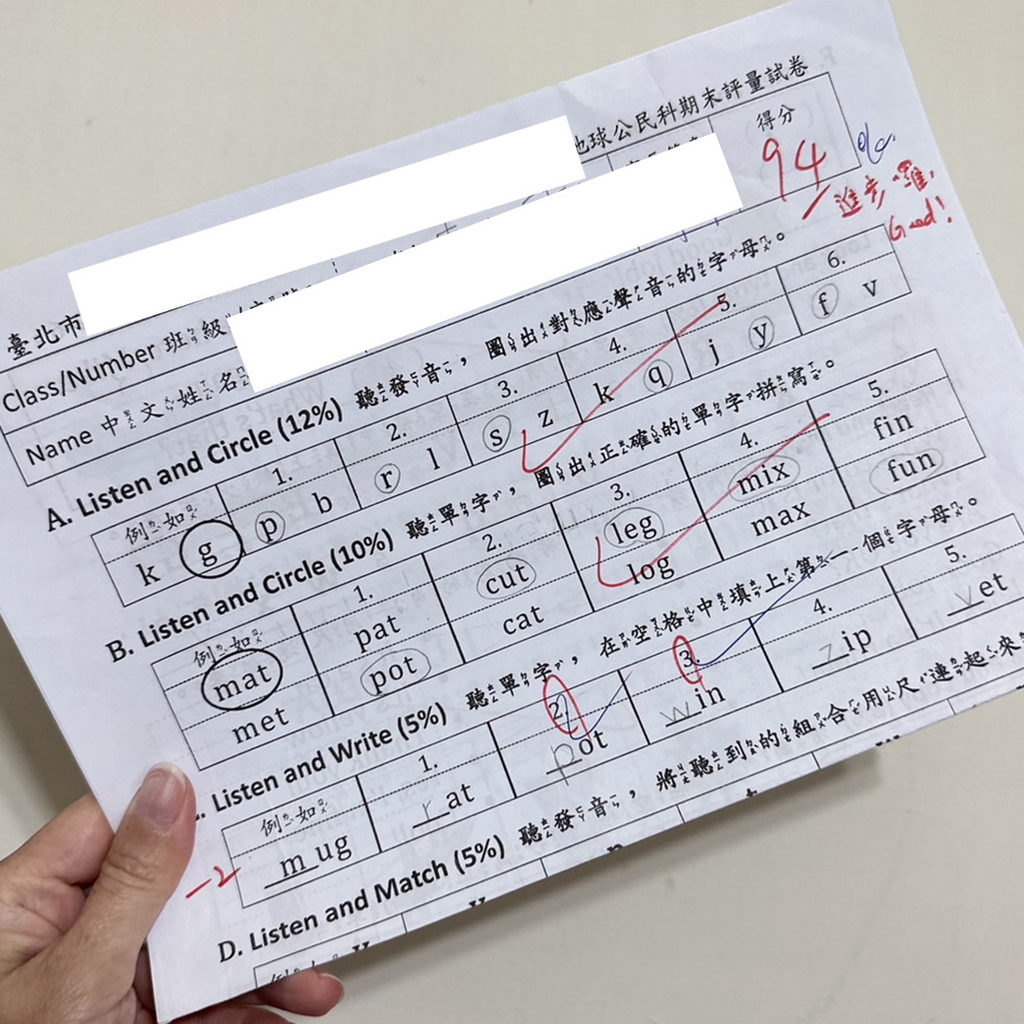 地球公民科期末評量試卷
臺北市
得分
94
進步囉,
Good!
Class/Number 班級
Name 中文姓名
A. Listen and Circle (12%) 聽發音,圈出對應聲音的字母。
例如 1. 2. 3. 4. 5. 6.
k g p b r l s z k q j y f v
B. Listen and Circle (10%) 聽單字,圈出正確的單字拼寫。
例如 1. 2. 3. 4. 5.
mat pat cut leg mix fin
met pot cat log max fun
. Listen and Write (5%) 聽單字,在空格中填上第一個字母。
例如 1. 2. 3. 4. 5.
m ug r at p ot w in z ip v et
-2
D. Listen and Match (5%) 聽發音,將聽到的組合用尺連起來